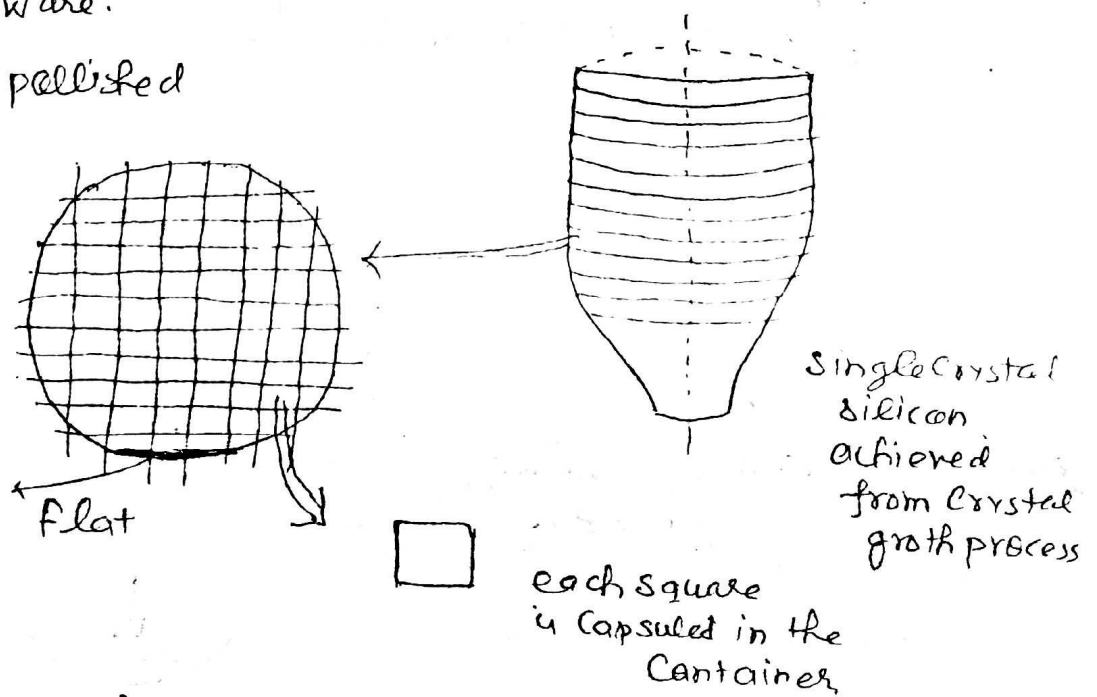 pollished
Flat
Single Crystal
silicon
achieved
from Crystal
groth process
each square
is Capsuled in the
Container